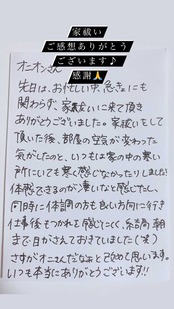 家祓い
ご感想ありがとう
ございます♪
感謝🙏
オニオンさん
先日は、お忙しい中、急きょにも
関わらず、家祓いに来て頂き
ありがとうございました。家祓いをして
頂いた後、部屋の空気が変わった
気がしたのと、いつもは家の中の寒い
所にいても寒く感じなかったりしました!
体感できるのが凄いなと感じたし、
同時に体調の方も良い方向に行き
仕事後もつかれを感じにくく、結局朝
まで目がさえておきていました(笑)
さすがオニオンさんだなぁと改めて思います。
いつも本当にありがとうございます!!